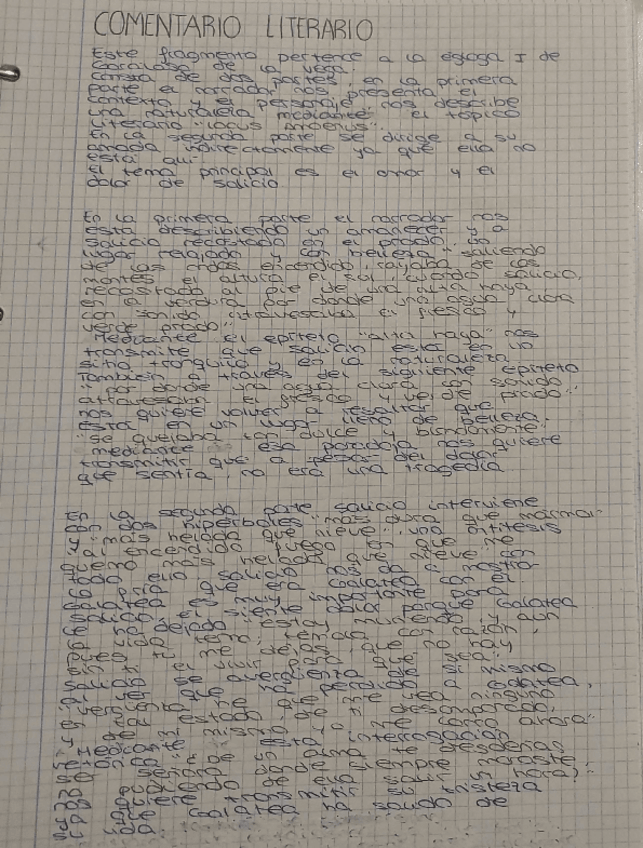 COMENTARIO LITERARIO
Este fragmento pertence a la egloga I de
Garcilaso de la Vega.
consta de dos partes, en la primera
parte el narrador nos presenta el
contexto y el personaje, nos describe
una naturaleza mediante el topico
literario "locus amoenus".
En la segunda parte se dirige a su
amada indirectamente ya que ella no
esta qui.
El tema principal es el amor y el
dolor de salicio.
En la primera parte el narrador nos
esta describiendo un amanecer y a
salicio recostado en el prado, un
lugar relajado y con belleza "saliendo
de las ondas encendido, rayaba de los
montes el altura el sol, cuando salicio,
recostado al pie de una alta haya
en la verdura por donde una agua clara
con sonido atravesaba el fresco y
verde prado".
Mediante el epiteto "alta haya" nos
transmite que salicio esta en un
sitio tranquilo y en la naturaleza.
Tambien a traves del siguiente epiteto
"por donde una agua clara con sonido
atravesaba el fresco y verde prado".
nos quiere volver a resaltar que
esta en un lugar lleno de belleza.
"se quejaba tan dulce y blandamente"
mediante esa paradoja nos quiere
transmitir que a pesar del dolor
que sentia, no era una tragedia
En la segunda parte salicio interviene
con dos hiperboles "mas dura que marmol"
y "mas helada que nieve", una antitesis
"al encendido fuego en que me
quemo mas helada que nieve" con
todo ello salicio nos da a mostrar
lo fria que era Galatea con el.
Galatea es muy importante para
salicio, el siente dolor porque Galatea
le ha dejado "estoy muriendo y aun
la vida temo; temola con razon,
pues tu me dejas, que no hay
sin ti el vivir para que sea".
salicio se averguenza de si mismo
al ver que ha perdido a Galatea,
"verguenza he que me vea ninguno
en tal estado, de ti desamparado,
y de mi mismo yo me corro ahora".
Mediante esta interrogacion
retorica "¿de un alma te desdeñas
ser señora donde siempre moraste,
no pudiendo de ella salir un hora?"
quiere transmitir su tristeza
Galatea ha salido de
vida.